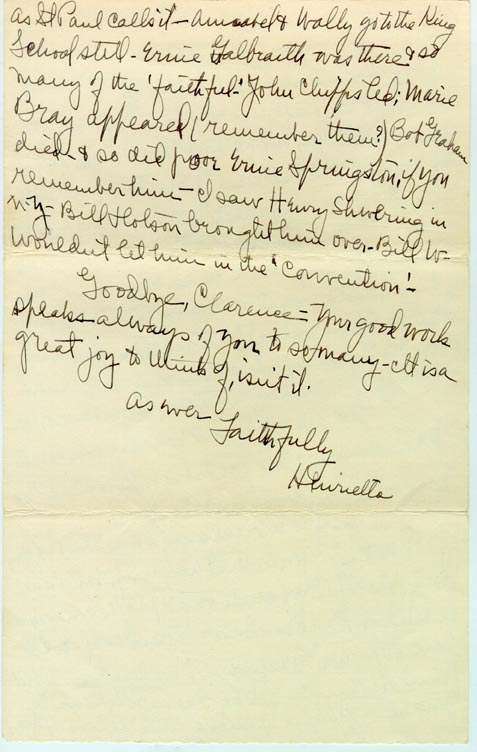 as St Paul calls it - Annabel & Wally go to the King
School still - Ernie Galbraith was there & so
many of the 'faithful'- John Clupps led; Marie
Bray appeared (remember them?) Bob Graham
died & so did poor Ernie Springston, if you
remember him - I saw Henry in
N-Y- Bill Hotson brought him over - Bill W-
wouldn't let him in the 'Convention'! -
Goodbye, Clarence - Your good work
speaks always of you to so many - It is a
great joy to think of, isn't it.
As ever
Faithfully
Henrietta